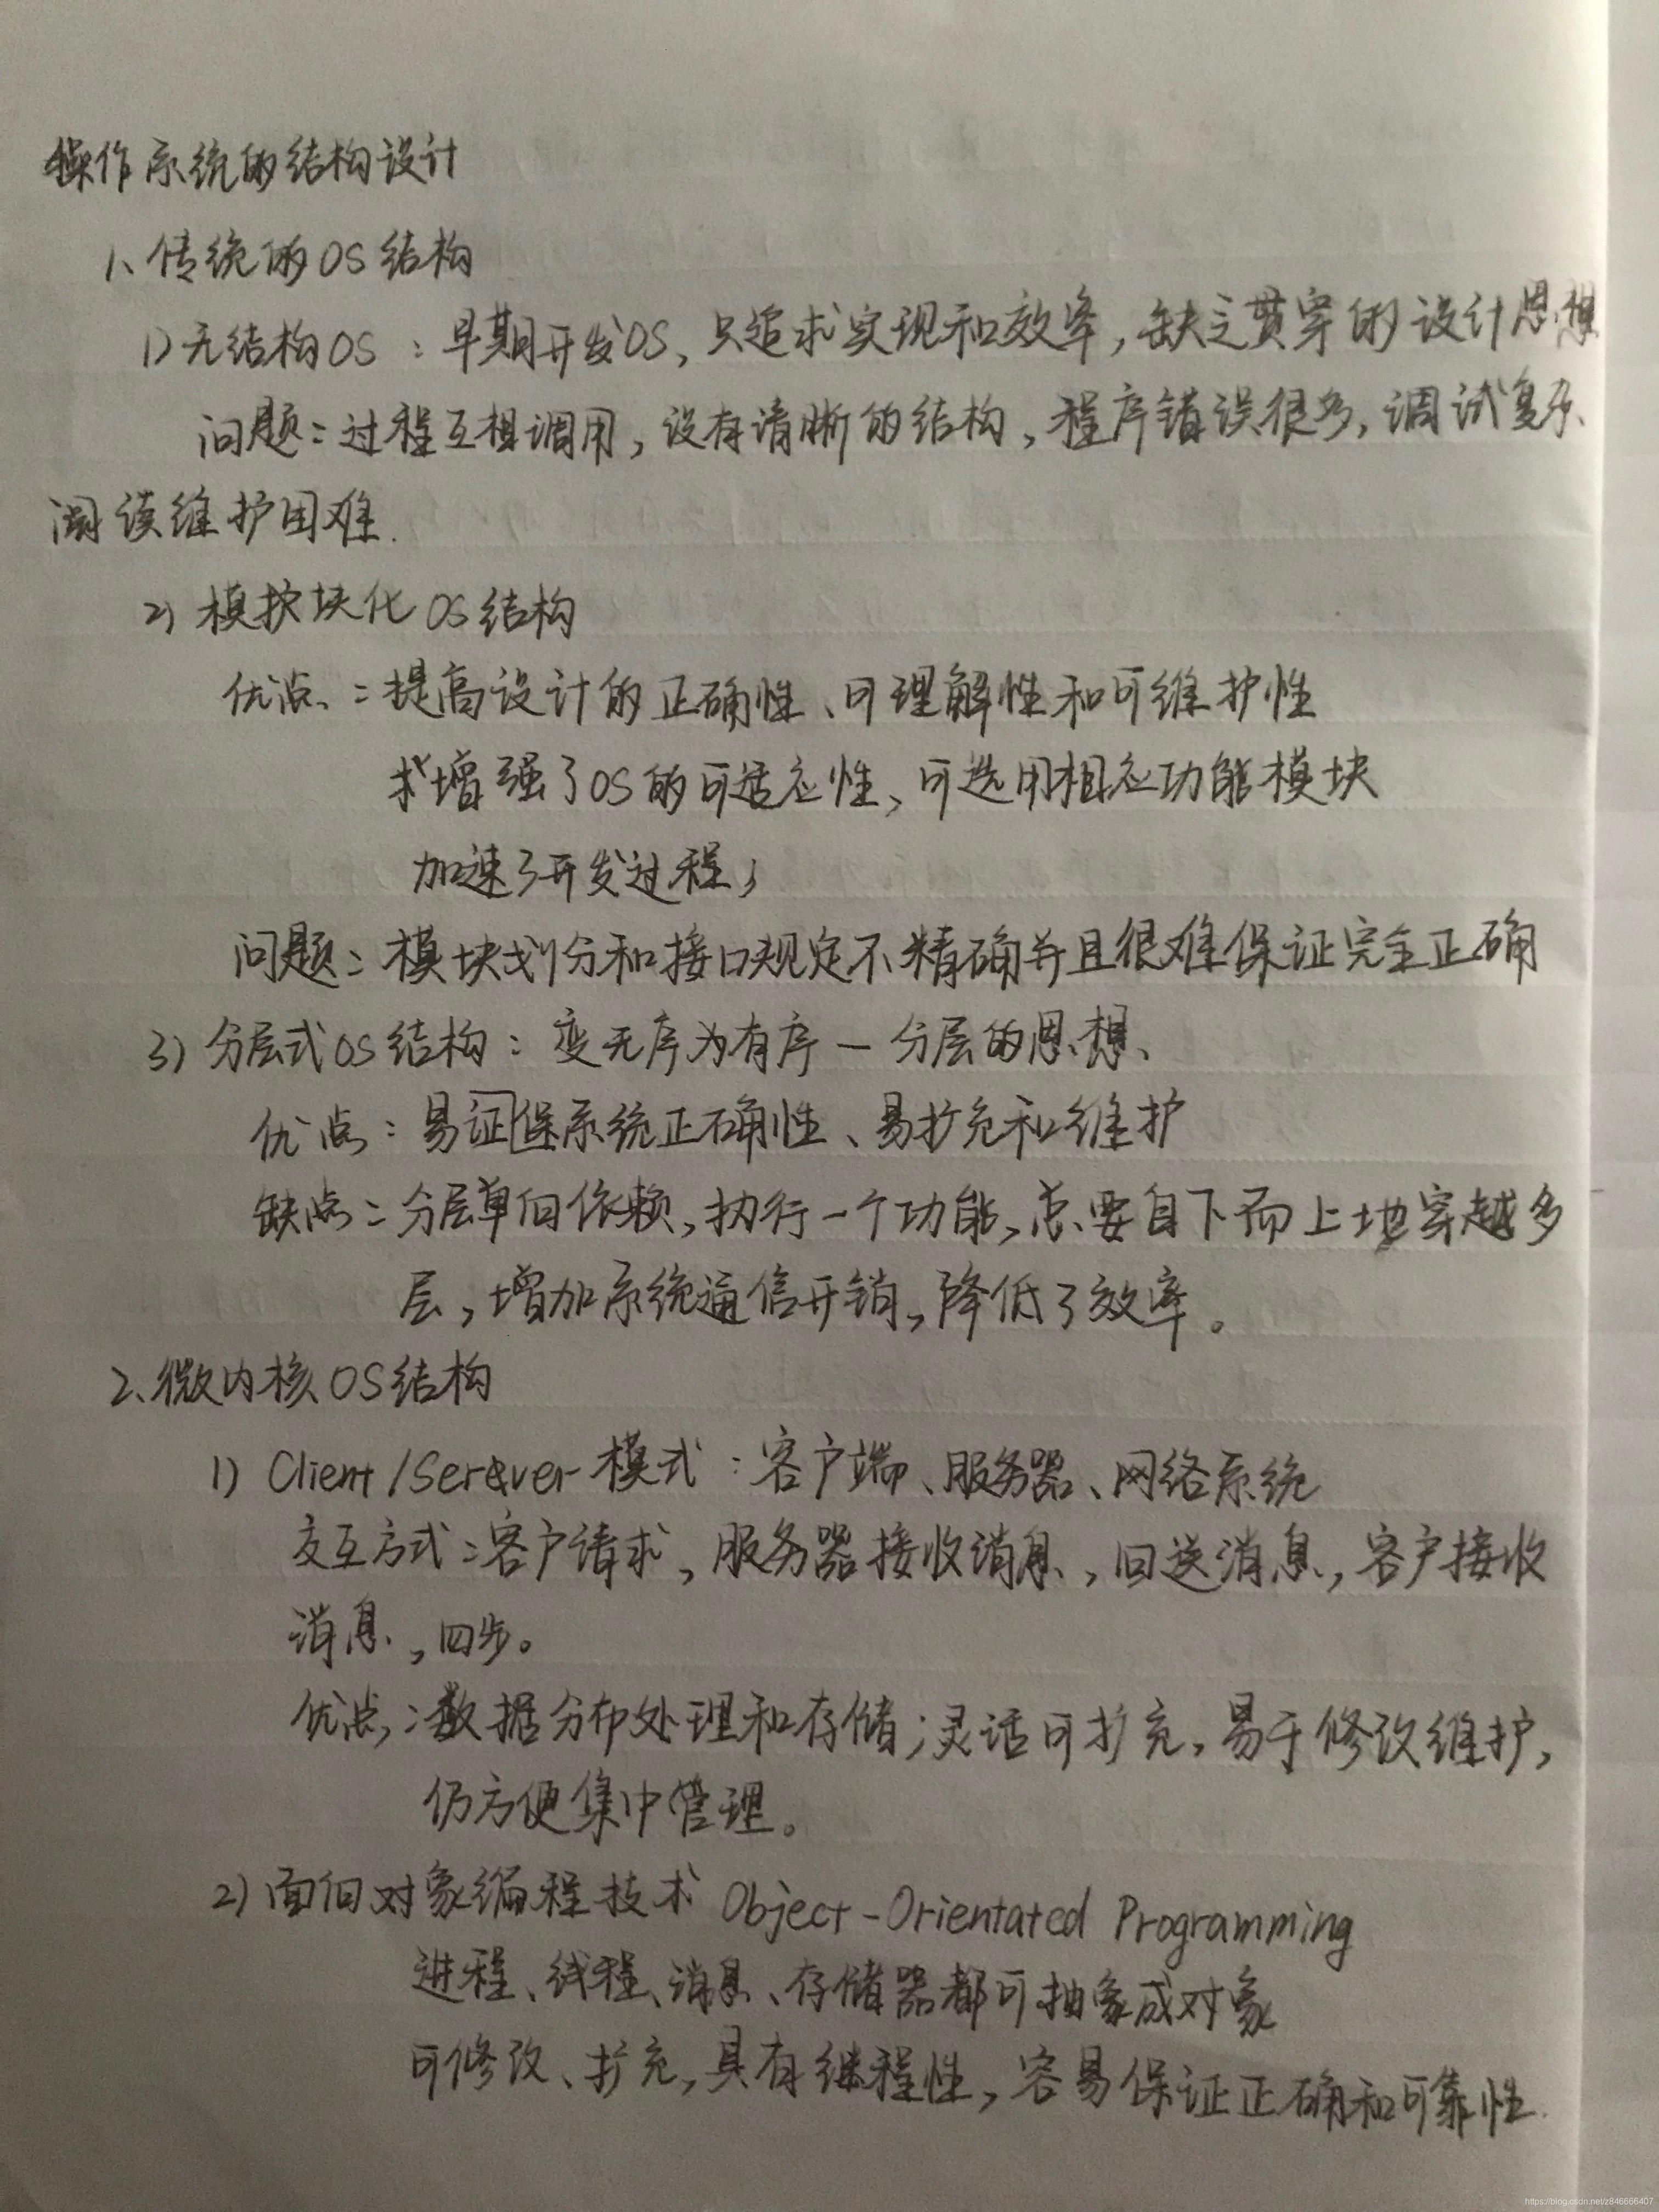 操作系统的结构设计
1、传统的OS结构
1)无结构OS：早期开发OS，只追求实现和效率，缺乏贯穿的设计思想
问题：过程互相调用，没有清晰的结构，程序错误很多，调试复杂、
阅读维护困难.
2) 模块化OS结构
优点：提高设计的正确性、可理解性和可维护性
增强了OS的可适应性，可选用相应功能模块
加速了开发过程，
问题：模块划分和接口规定不精确并且很难保证完全正确
3) 分层式OS结构：变无序为有序—分层的思想、
优点：易证保系统正确性、易扩充和维护
缺点：分层单向依赖，执行一个功能，总要自下而上地穿越多
层，增加系统通信开销，降低了效率。
2、微内核OS结构
1) Client/Server模式：客户端、服务器、网络系统
交互方式：客户请求，服务器接收消息，回送消息，客户接收
消息，四步。
优点：数据分布处理和存储；灵活可扩充，易于修改维护，
仍方便集中管理。
2) 面向对象编程技术 Object-Orientated Programming
进程、线程、消息、存储器都可抽象成对象
可修改、扩充，具有继程性，容易保证正确和可靠性.
https://blog.csdn.net/z846666407